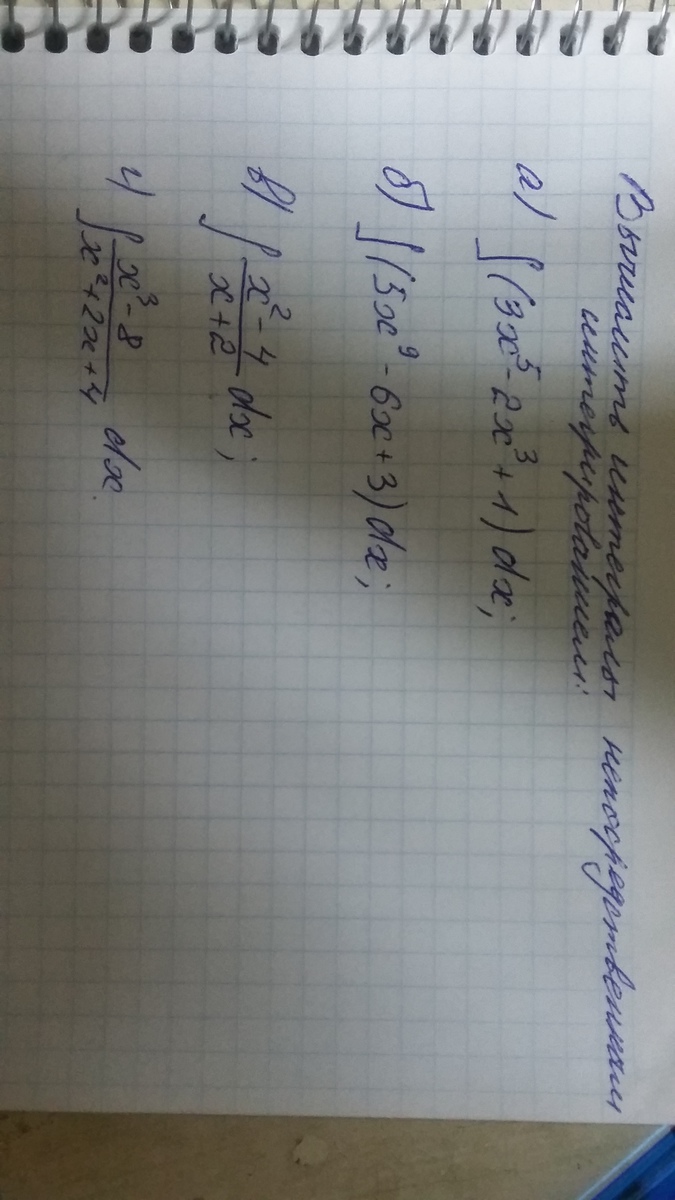 Вычислить интегралы непосредственным
интегрированием:
а) ∫(3x⁵ - 2x³ + 1) dx;
б) ∫(5x⁹ - 6x + 3) dx;
в) ∫ (x² - 4)/(x + 2) dx;
г) ∫ (x³ - 8)/(x² + 2x + 4) dx.